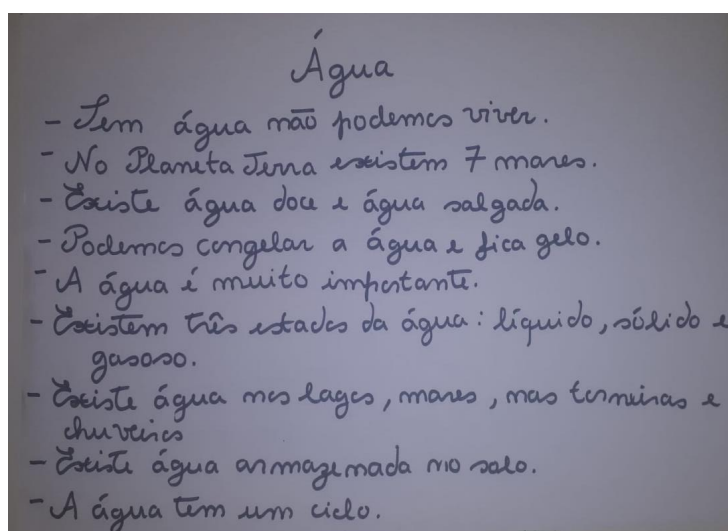 Água
- Sem água não podemos viver.
- No Planeta Terra existem 7 mares.
- Existe água doce e água salgada.
- Podemos congelar a água e fica gelo.
- A água é muito importante.
- Existem três estados da água: líquido, sólido e
gasoso.
- Existe água nos lagos, mares, nas torneiras e
chuveiros
- Existe água armazenada no solo.
- A água tem um ciclo.